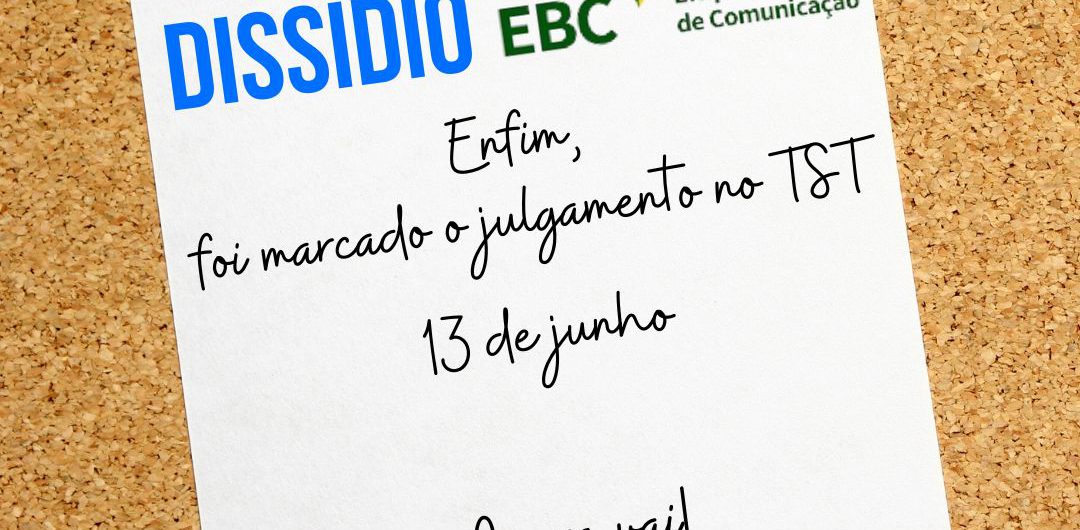 DISSÍDIO
EBC
de Comunicação
Enfim,
foi marcado o julgamento no TST
13 de junho